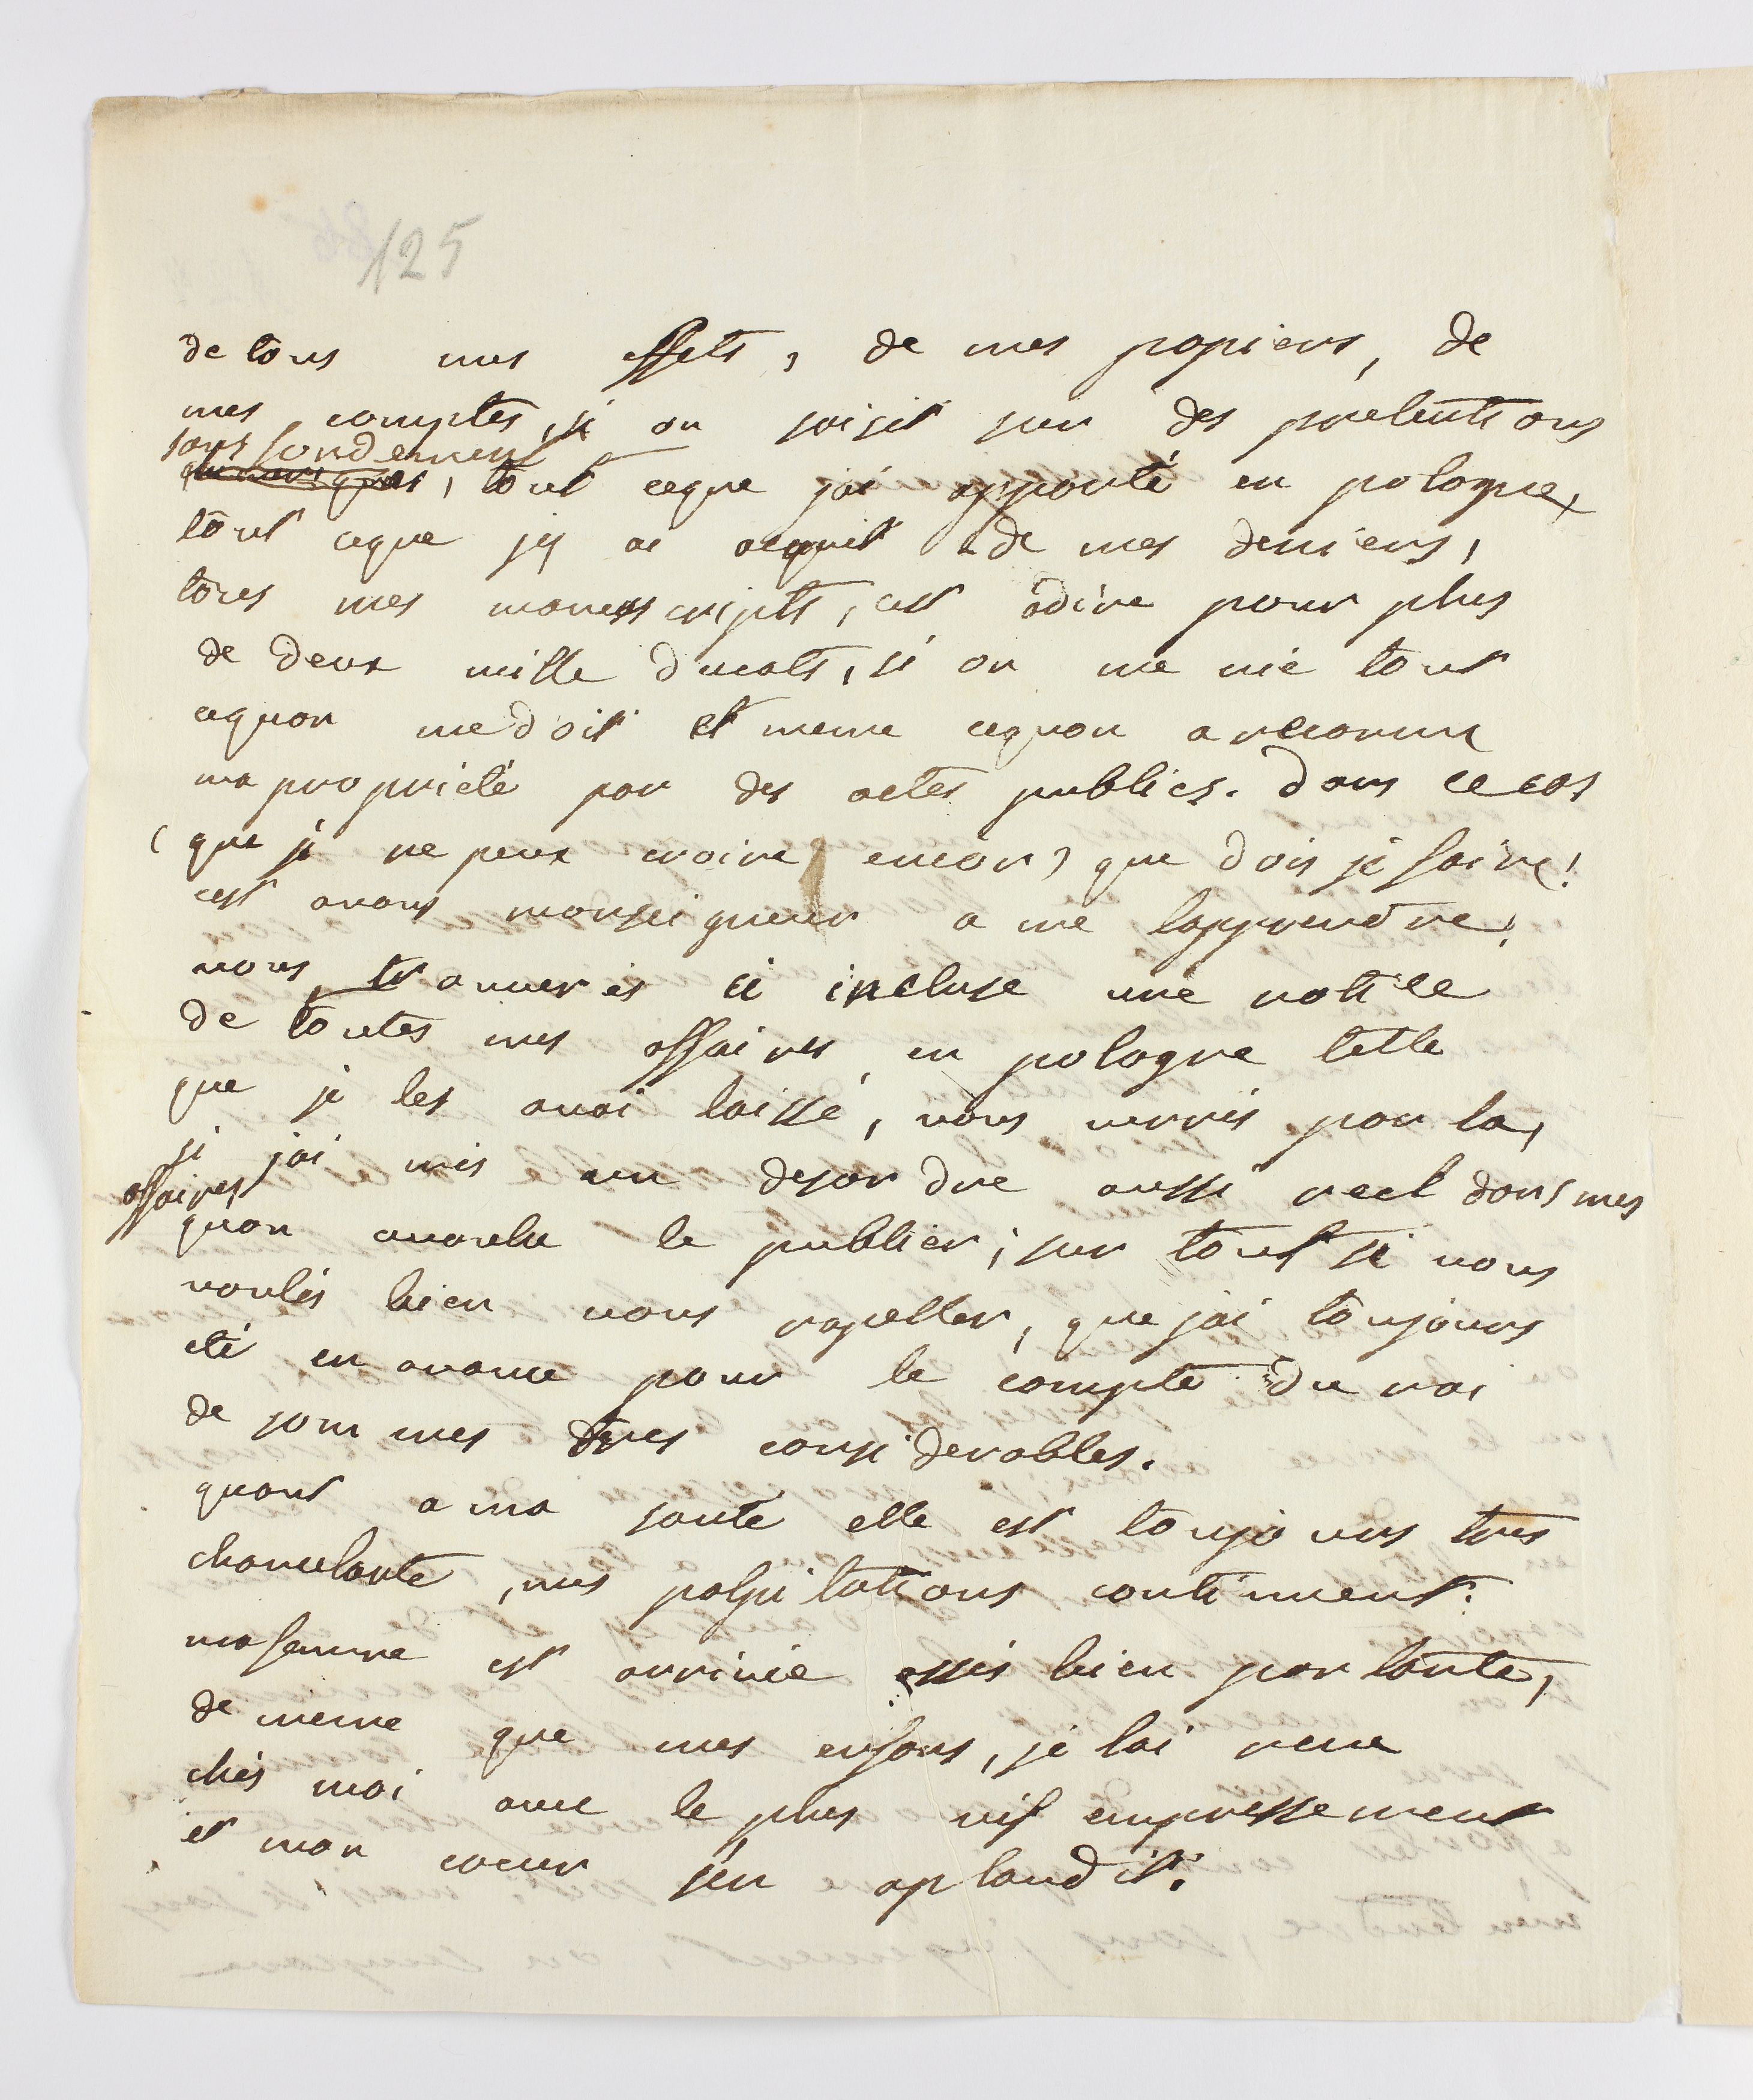 125
de tous mes effets, de mes papiers, de
mes comptes, si on saisit sur des pretentions
sans fondement
chimeriques, tout ceque jai apporté en pologne,
tout ceque jy ai acquit de mes deniers,
tous mes manusscripts, cest adire pour plus
de deux mille ducats, si on me nie tout
cequon medoit et meme cequon a reconnu
ma propriété par des actes publics. dans ce cas
(que je ne peux croire encor) que dois je faire!
cest avous monseigneur a me lapprendre!
vous trouverés ci incluse une notice
de toutes mes affaires, en pologne telle
que je les avai laissé, vous verrés par la,
si jai mis un desordre aussi reel dans mes
affaires
quon avoulu le publier, sur tout si vous
voulés bien vous rapeller, que jai toujours
eté en avance pour le compte du roi
de sommes tres considerables.
quant a ma santé elle est toujours tres
chancelante, mes palpitations continuent.
mafemme est arrivée assés bien portante,
de meme que mes enfans, je lai revue
chés moi avec le plus vif empressement
et mon coeur sén aplaudit.